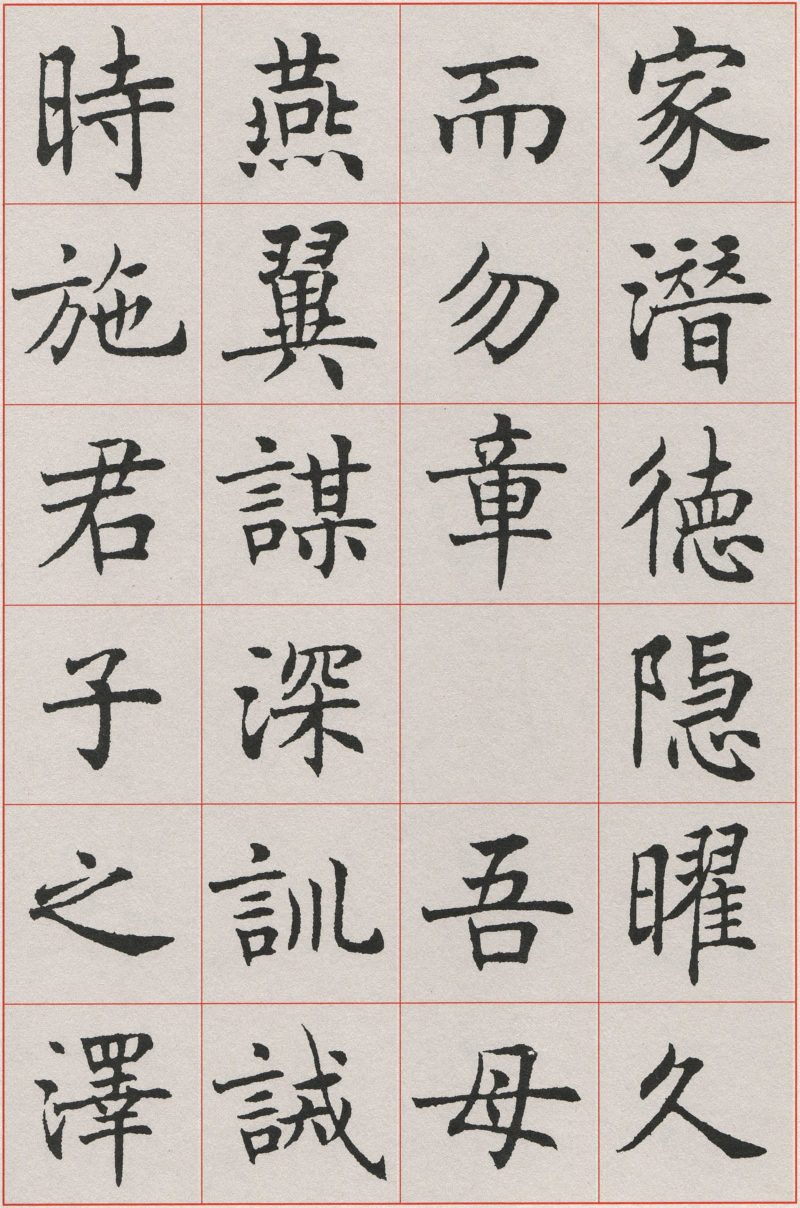 家潛德隱曜久
而勿章吾母
燕翼謀深訓誡
時施君子之澤